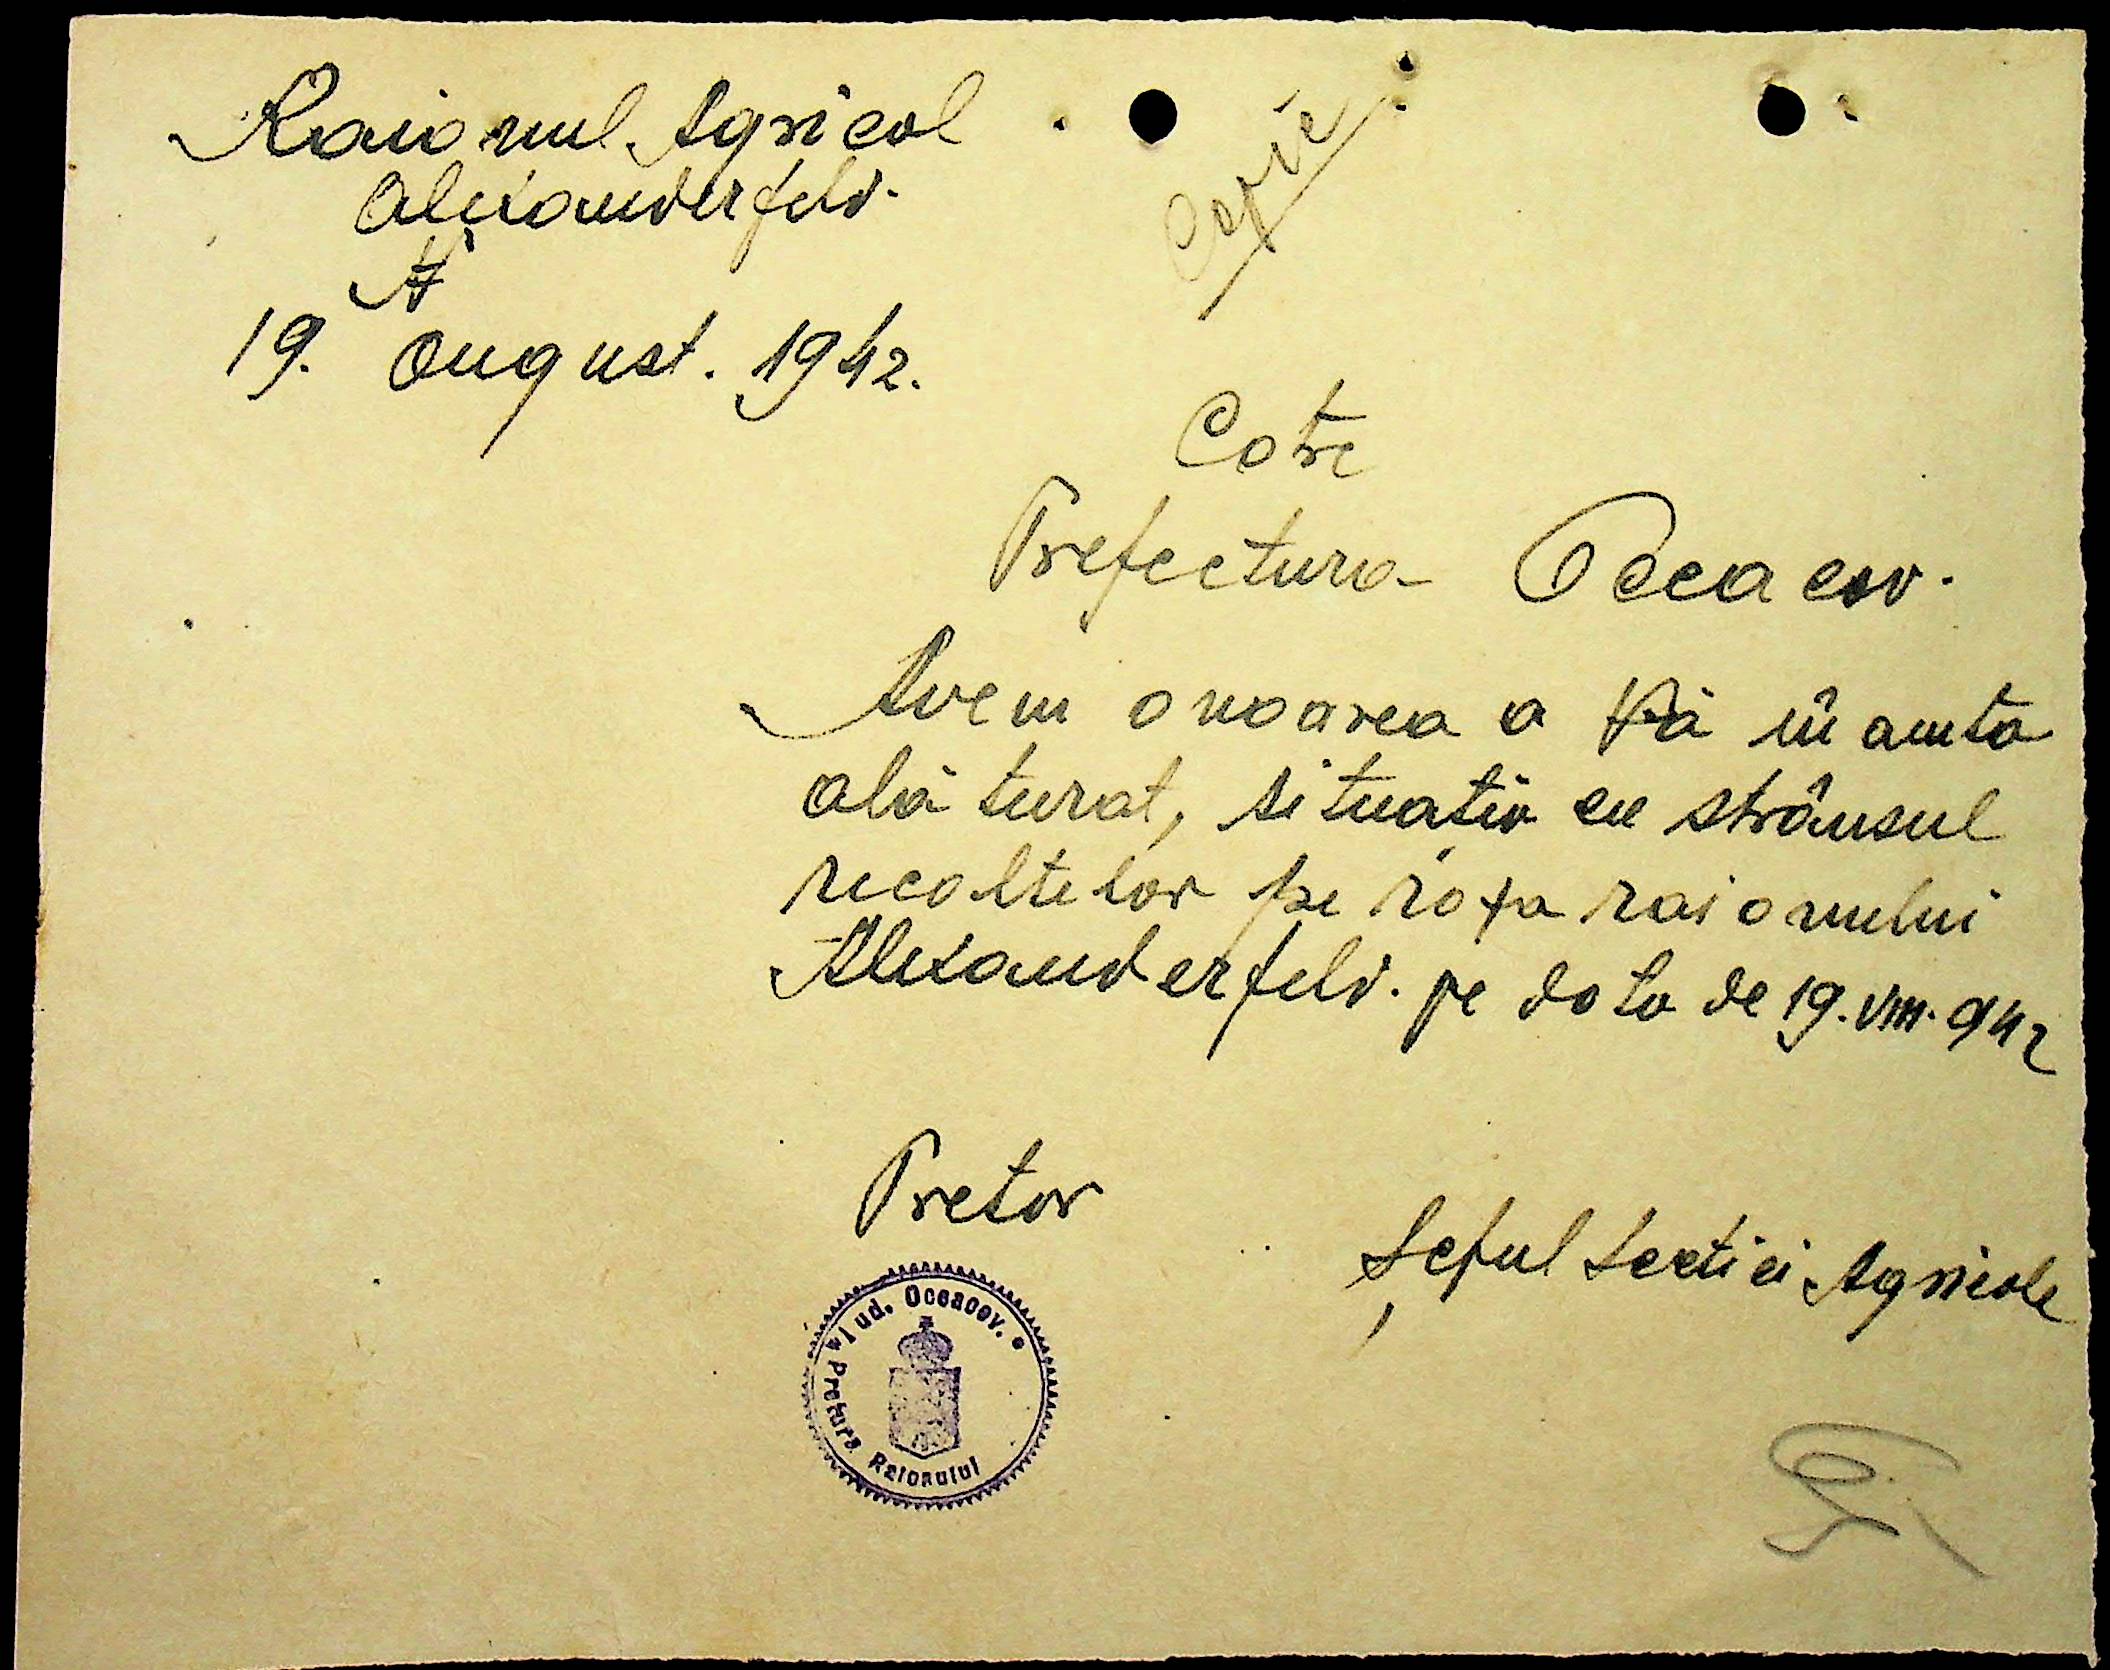 Raionul Agricol
Alexanderfeld.
19. August. 1942.
Copie
Cotre
Prefectura Oceacov.
Avem onoarea a Vă înainta
alăturat, situatia cu strânsul
recoltelor pe raza raionului
Alexanderfeld. pe data de 19.VIII.942
Pretor
Șeful Sectiei Agricole
Jud. Oceacov.
Pretura Raionului